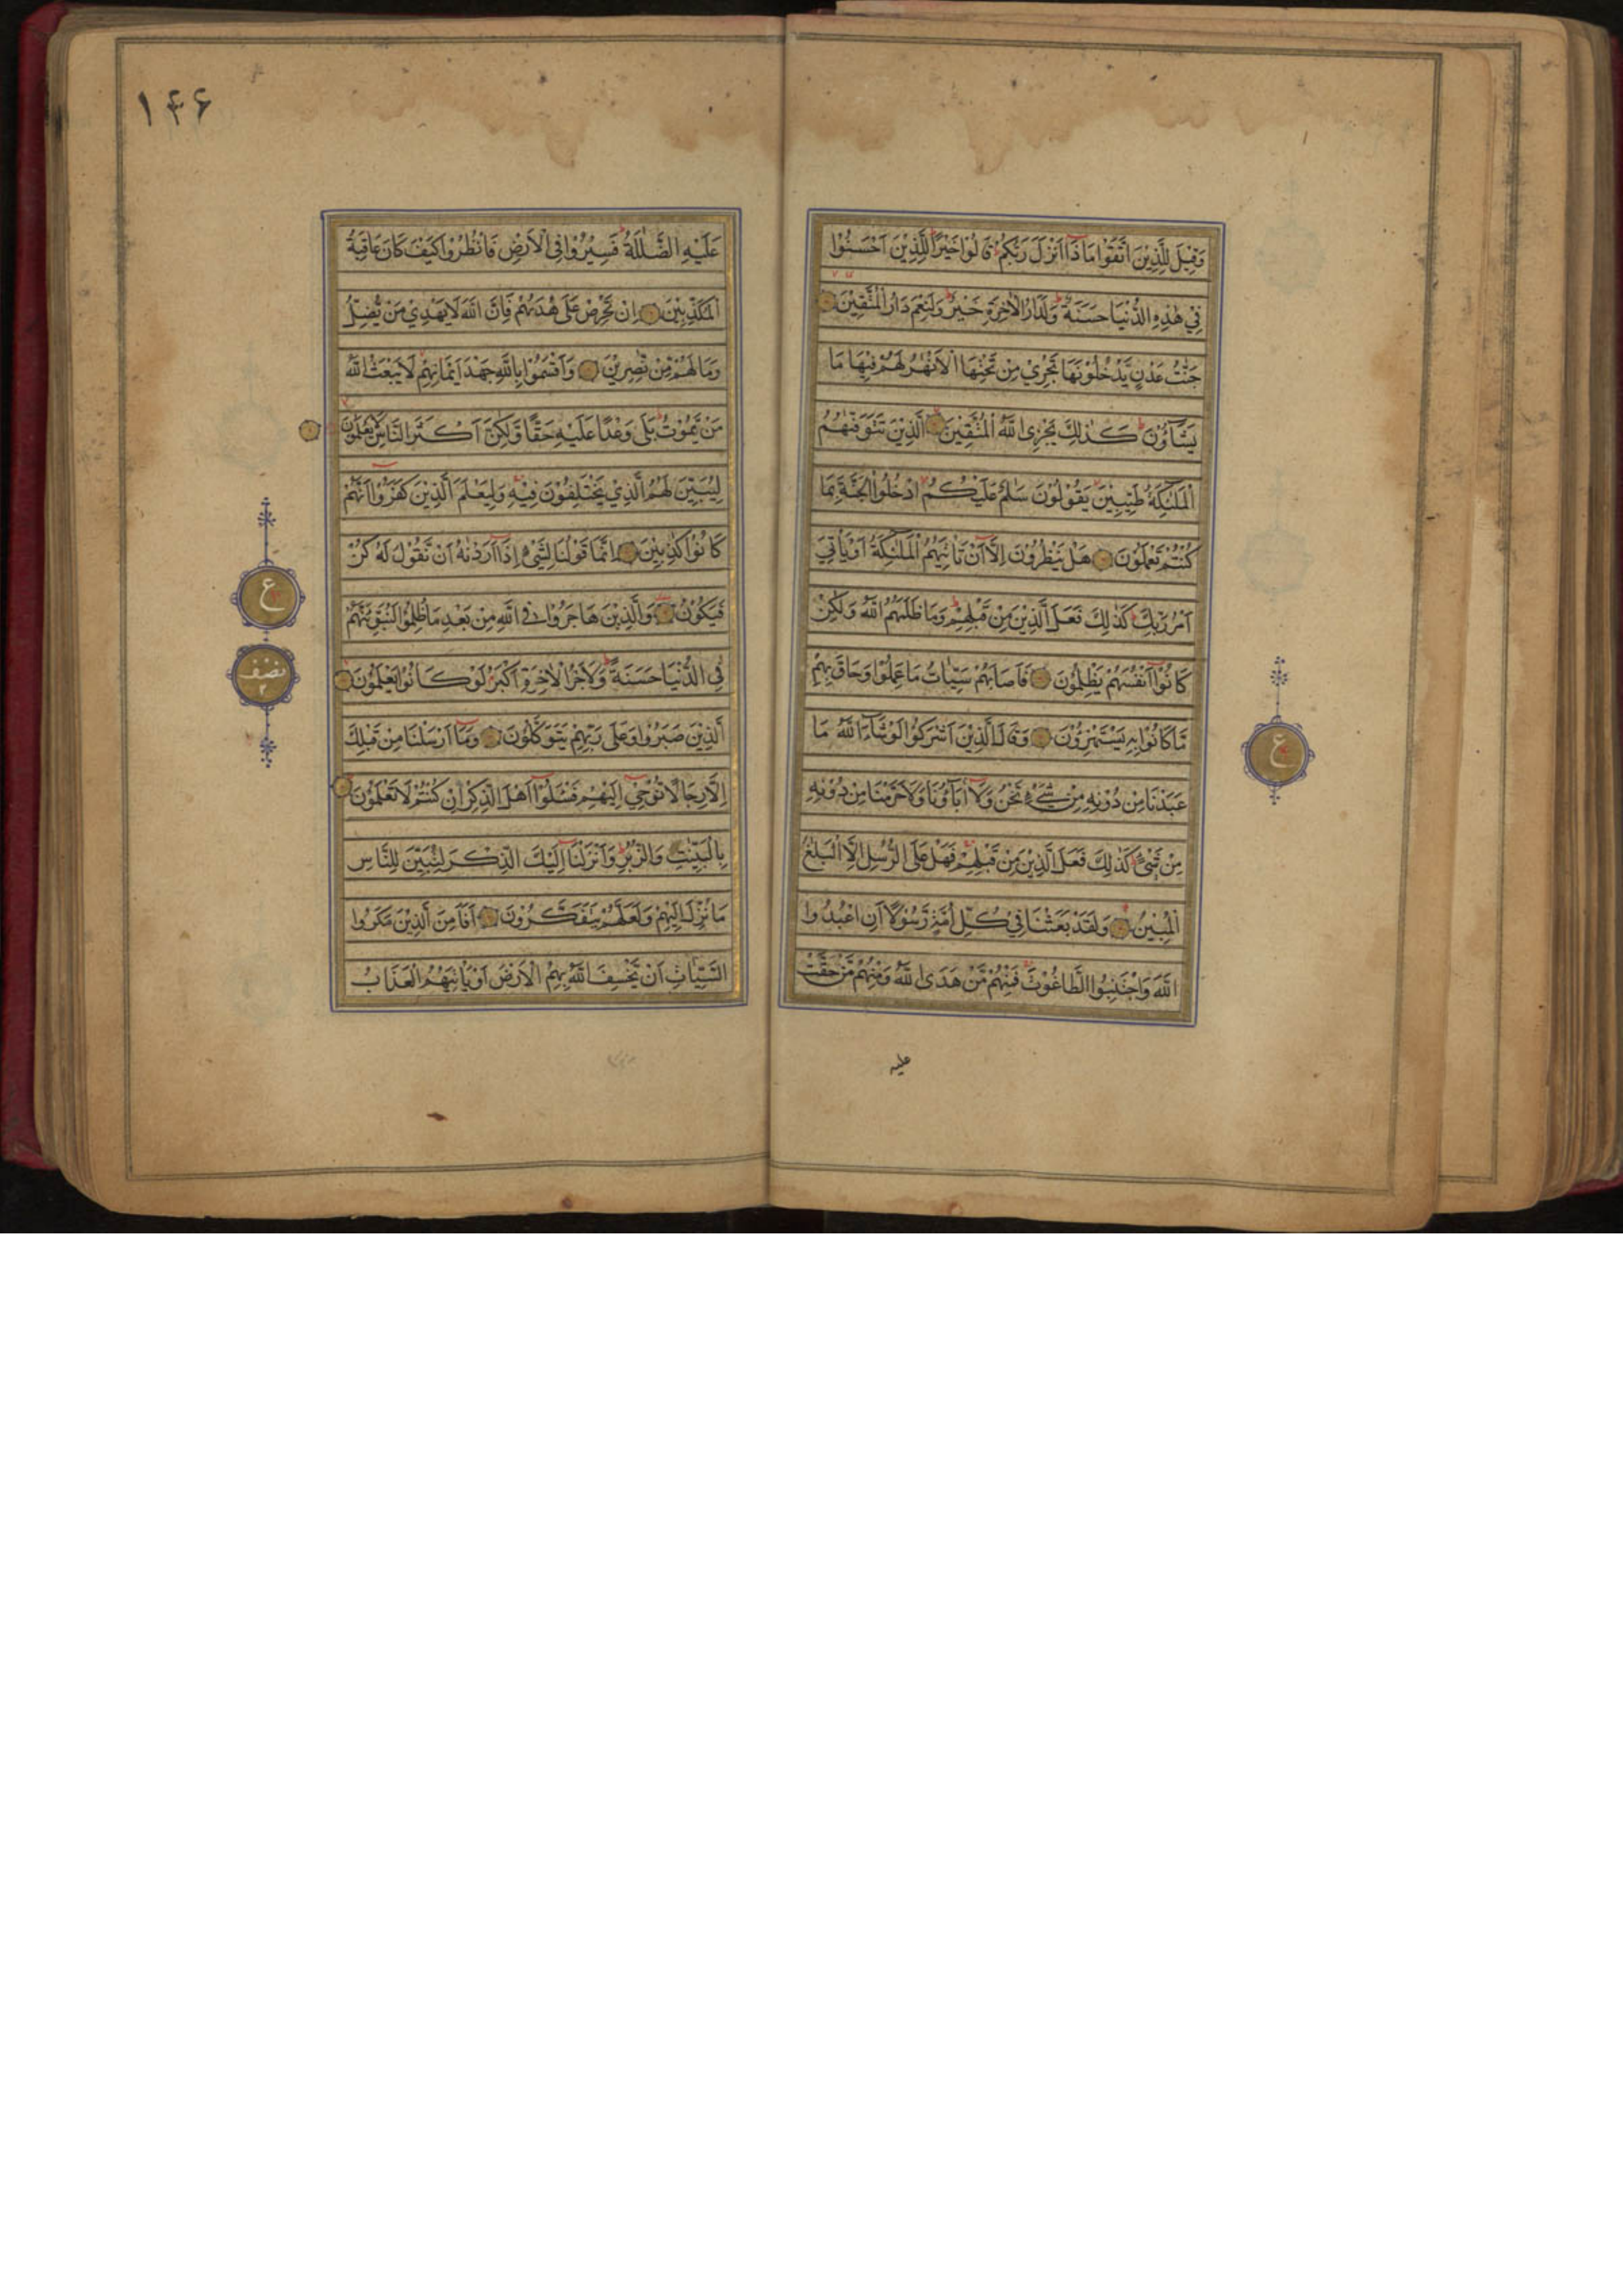 وَقِيْلَ لِلَّذِيْنَ اتَّقَوْا مَا ذَآ اَنْزَلَ رَبُّكُمْ قَالُوْا خَيْرًا لِلَّذِيْنَ اَحْسَنُوْا
فِيْ هٰذِهِ الدُّنْيَا حَسَنَةٌ وَلَدَارُ الْاٰخِرَةِ خَيْرٌ وَلَنِعْمَ دَارُ الْمُتَّقِيْنَ
جَنّٰتُ عَدْنٍ يَّدْخُلُوْنَهَا تَجْرِيْ مِنْ تَحْتِهَا الْاَنْهٰرُ لَهُمْ فِيْهَا مَا
يَشَآؤُنَ كَذٰلِكَ يَجْزِى اللّٰهُ الْمُتَّقِيْنَ الَّذِيْنَ تَتَوَفّٰهُمُ
الْمَلٰٓئِكَةُ طَيِّبِيْنَ يَقُوْلُوْنَ سَلٰمٌ عَلَيْكُمُ ادْخُلُوا الْجَنَّةَ بِمَا
كُنْتُمْ تَعْمَلُوْنَ هَلْ يَنْظُرُوْنَ اِلَّآ اَنْ تَاْتِيَهُمُ الْمَلٰٓئِكَةُ اَوْ يَاْتِيَ
اَمْرُ رَبِّكَ كَذٰلِكَ فَعَلَ الَّذِيْنَ مِنْ قَبْلِهِمْ وَمَا ظَلَمَهُمُ اللّٰهُ وَلٰكِنْ
كَانُوْٓا اَنْفُسَهُمْ يَظْلِمُوْنَ فَاَصَابَهُمْ سَيِّاٰتُ مَا عَمِلُوْا وَحَاقَ بِهِمْ
مَّا كَانُوْا بِهٖ يَسْتَهْزِؤُنَ وَقَالَ الَّذِيْنَ اَشْرَكُوْا لَوْ شَآءَ اللّٰهُ مَا
عَبَدْنَا مِنْ دُوْنِهٖ مِنْ شَيْءٍ نَحْنُ وَلَآ اٰبَآؤُنَا وَلَا حَرَّمْنَا مِنْ دُوْنِهٖ
مِنْ شَيْءٍ كَذٰلِكَ فَعَلَ الَّذِيْنَ مِنْ قَبْلِهِمْ فَهَلْ عَلَى الرُّسُلِ اِلَّا الْبَلٰغُ
الْمُبِيْنُ وَلَقَدْ بَعَثْنَا فِيْ كُلِّ اُمَّةٍ رَّسُوْلًا اَنِ اعْبُدُوا
اللّٰهَ وَاجْتَنِبُوا الطَّاغُوْتَ فَمِنْهُمْ مَّنْ هَدَى اللّٰهُ وَمِنْهُمْ مَّنْ حَقَّتْ
علیه
ع
۱۴۶
عَلَيْهِ الضَّلٰلَةُ فَسِيْرُوْا فِى الْاَرْضِ فَانْظُرُوْا كَيْفَ كَانَ عَاقِبَةُ
الْمُكَذِّبِيْنَ اِنْ تَحْرِصْ عَلٰى هُدٰىهُمْ فَاِنَّ اللّٰهَ لَا يَهْدِيْ مَنْ يُّضِلُّ
وَمَا لَهُمْ مِّنْ نّٰصِرِيْنَ وَاَقْسَمُوْا بِاللّٰهِ جَهْدَ اَيْمَانِهِمْ لَا يَبْعَثُ اللّٰهُ
مَنْ يَّمُوْتُ بَلٰى وَعْدًا عَلَيْهِ حَقًّا وَّلٰكِنَّ اَكْثَرَ النَّاسِ لَا يَعْلَمُوْنَ
لِيُبَيِّنَ لَهُمُ الَّذِيْ يَخْتَلِفُوْنَ فِيْهِ وَلِيَعْلَمَ الَّذِيْنَ كَفَرُوْٓا اَنَّهُمْ
كَانُوْا كٰذِبِيْنَ اِنَّمَا قَوْلُنَا لِشَيْءٍ اِذَآ اَرَدْنٰهُ اَنْ نَّقُوْلَ لَهٗ كُنْ
فَيَكُوْنُ وَالَّذِيْنَ هَاجَرُوْا فِى اللّٰهِ مِنْ بَعْدِ مَا ظُلِمُوْا لَنُبَوِّئَنَّهُمْ
فِى الدُّنْيَا حَسَنَةً وَّلَاَجْرُ الْاٰخِرَةِ اَكْبَرُ لَوْ كَانُوْا يَعْلَمُوْنَ
الَّذِيْنَ صَبَرُوْا وَعَلٰى رَبِّهِمْ يَتَوَكَّلُوْنَ وَمَآ اَرْسَلْنَا مِنْ قَبْلِكَ
اِلَّا رِجَالًا نُّوْحِيْٓ اِلَيْهِمْ فَسْئَلُوْٓا اَهْلَ الذِّكْرِ اِنْ كُنْتُمْ لَا تَعْلَمُوْنَ
بِالْبَيِّنٰتِ وَالزُّبُرِ وَاَنْزَلْنَآ اِلَيْكَ الذِّكْرَ لِتُبَيِّنَ لِلنَّاسِ
مَا نُزِّلَ اِلَيْهِمْ وَلَعَلَّهُمْ يَتَفَكَّرُوْنَ اَفَاَمِنَ الَّذِيْنَ مَكَرُوا
السَّيِّاٰتِ اَنْ يَّخْسِفَ اللّٰهُ بِهِمُ الْاَرْضَ اَوْ يَاْتِيَهُمُ الْعَذَابُ
ع
نصف